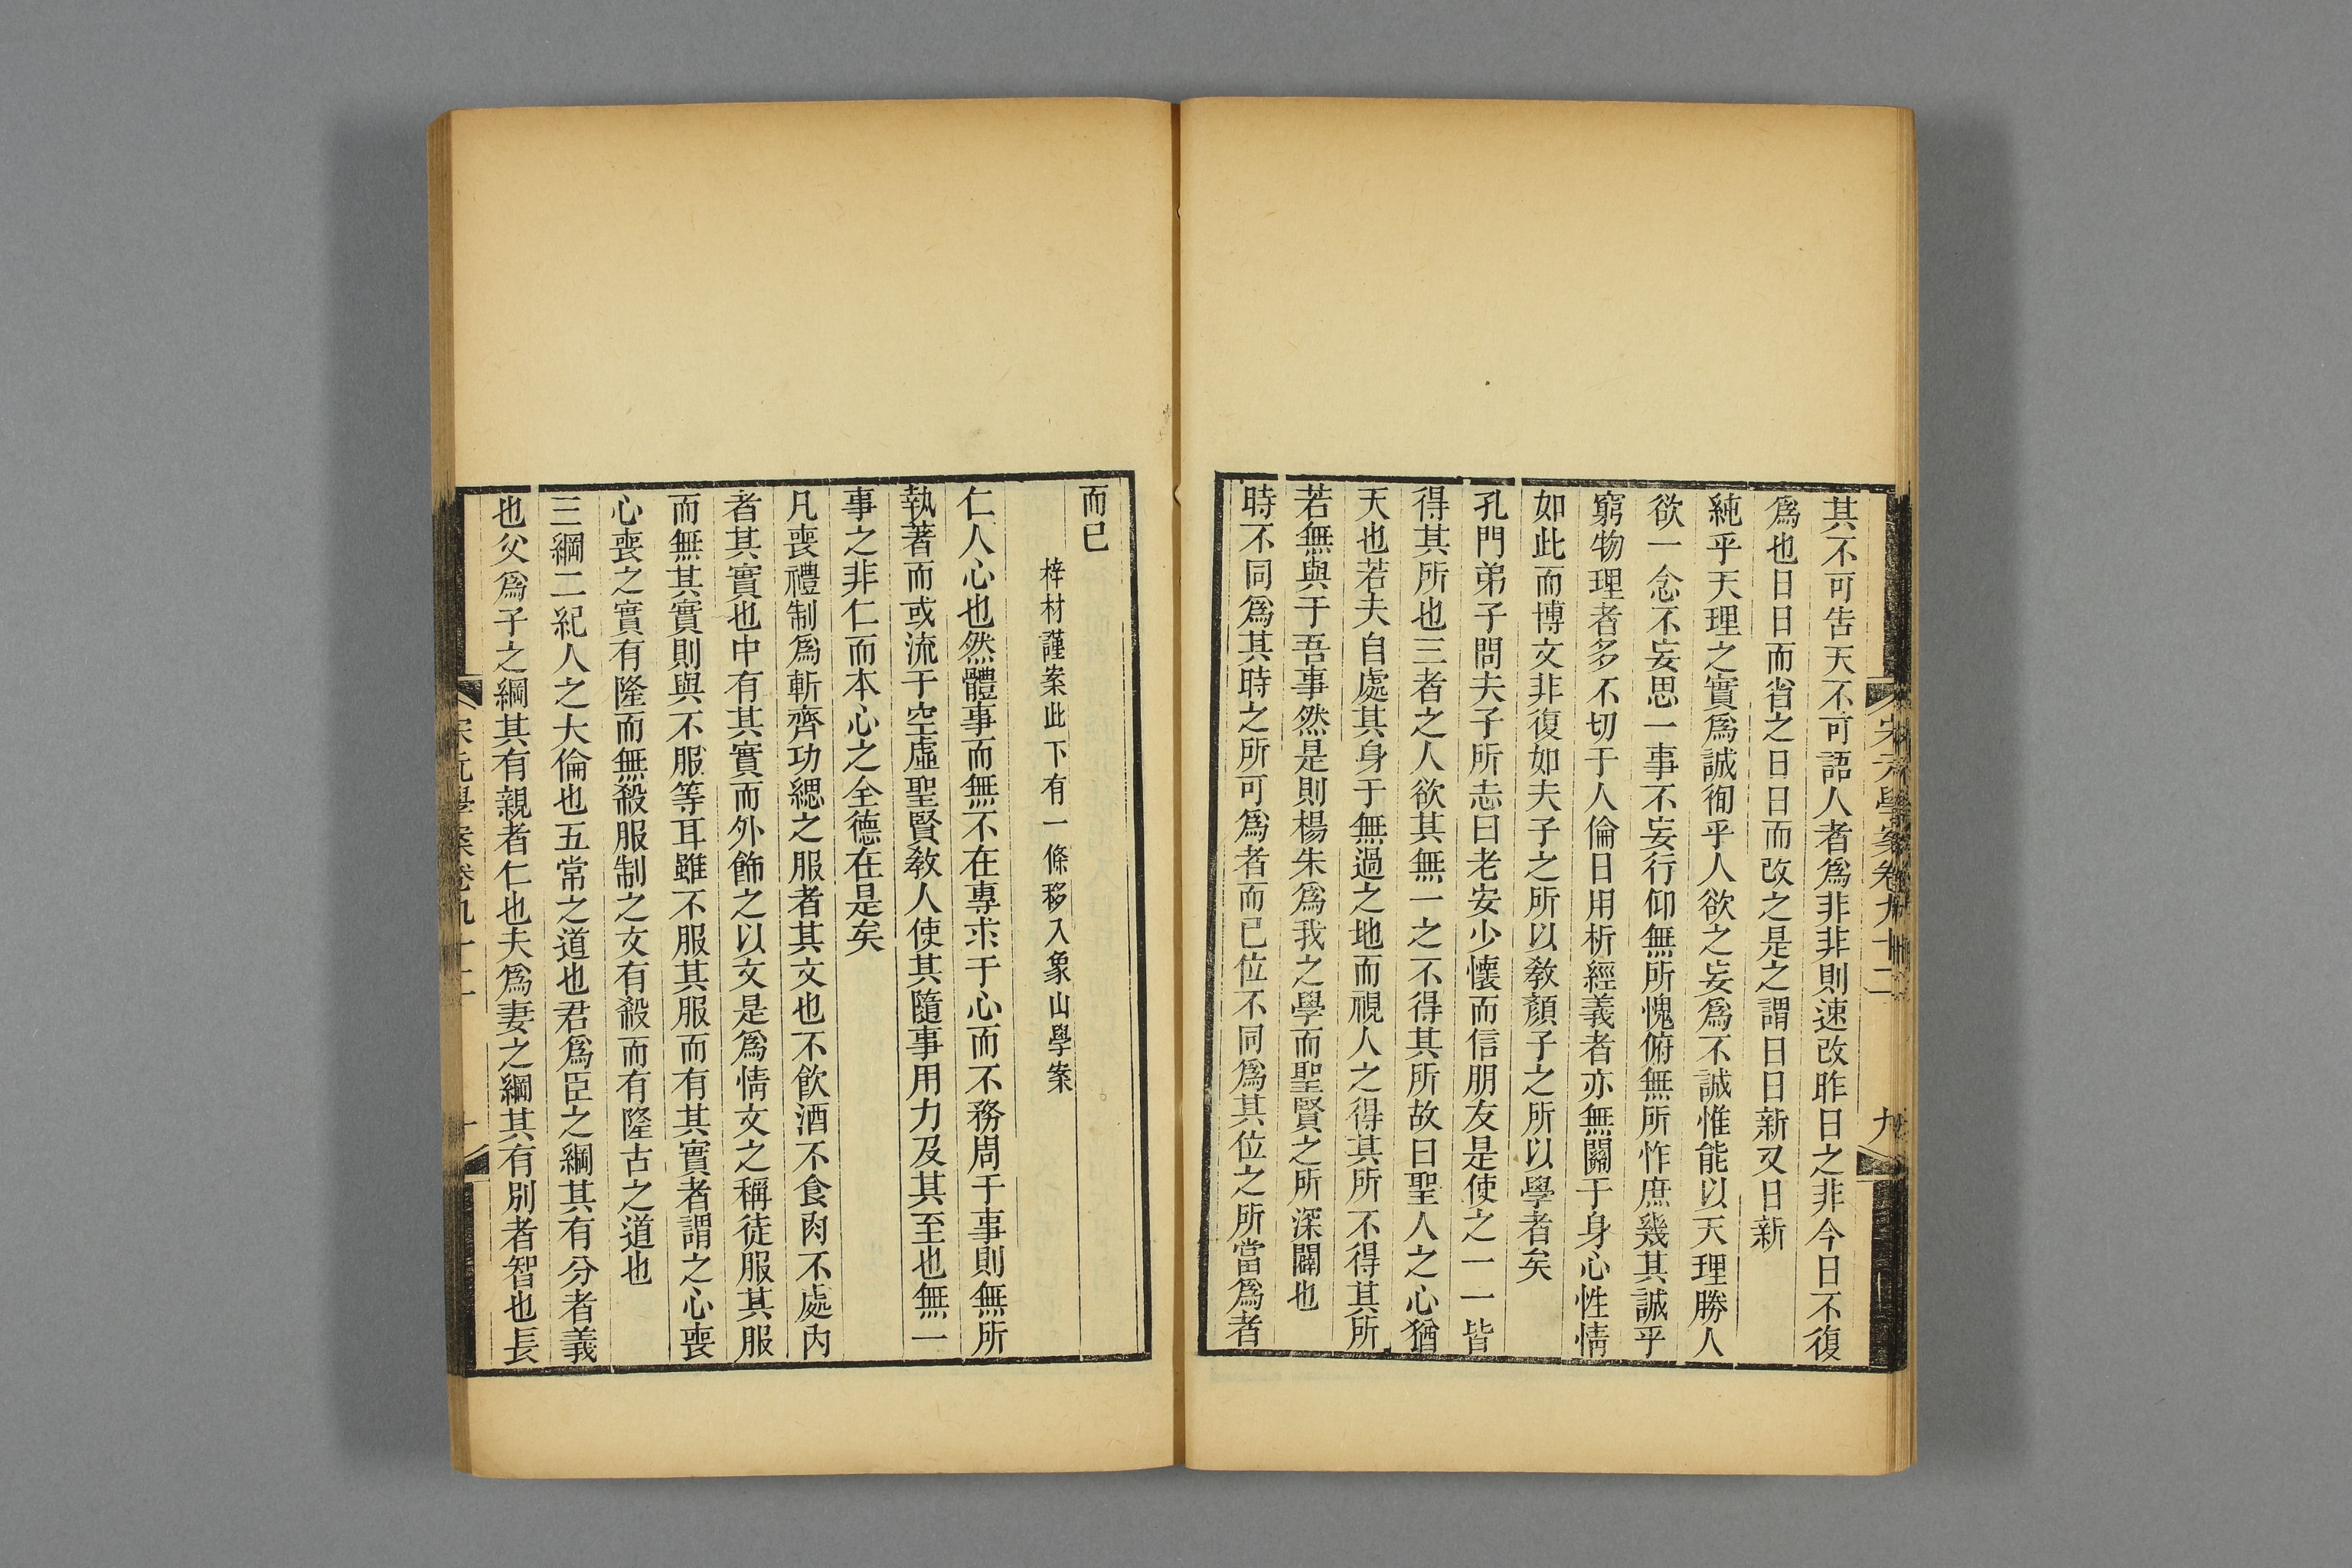 宋元學案卷九十二
九
其不可告天不可語人者爲非非則速改昨日之非今日不復
爲也日日而省之日日而改之是之謂日日新又日新
純乎天理之實爲誠徇乎人欲之妄爲不誠惟能以天理勝人
欲一念不妄思一事不妄行仰無所愧俯無所怍庶幾其誠乎
窮物理者多不切于人倫日用析經義者亦無關于身心性情
如此而博文非復如夫子之所以敎顏子之所以學者矣
孔門弟子問夫子所志曰老安少懷而信朋友是使之一一皆
得其所也三者之人欲其無一之不得其所故曰聖人之心猶
天也若夫自處其身于無過之地而視人之得其所不得其所
若無與于吾事然是則楊朱爲我之學而聖賢之所深闢也
時不同爲其時之所可爲者而已位不同爲其位之所當爲者
而已
梓材謹案此下有一條移入象山學案
仁人心也然體事而無不在專求于心而不務周于事則無所
執著而或流于空虛聖賢敎人使其隨事用力及其至也無一
事之非仁而本心之全德在是矣
凡喪禮制爲斬齊功緦之服者其文也不飲酒不食肉不處內
者其實也中有其實而外飾之以文是爲情文之稱徒服其服
而無其實則與不服等耳雖不服其服而有其實者謂之心喪
心喪之實有隆而無殺服制之文有殺而有隆古之道也
三綱二紀人之大倫也五常之道也君爲臣之綱其有分者義
也父爲子之綱其有親者仁也夫爲妻之綱其有別者智也長
宋元學案卷九十二